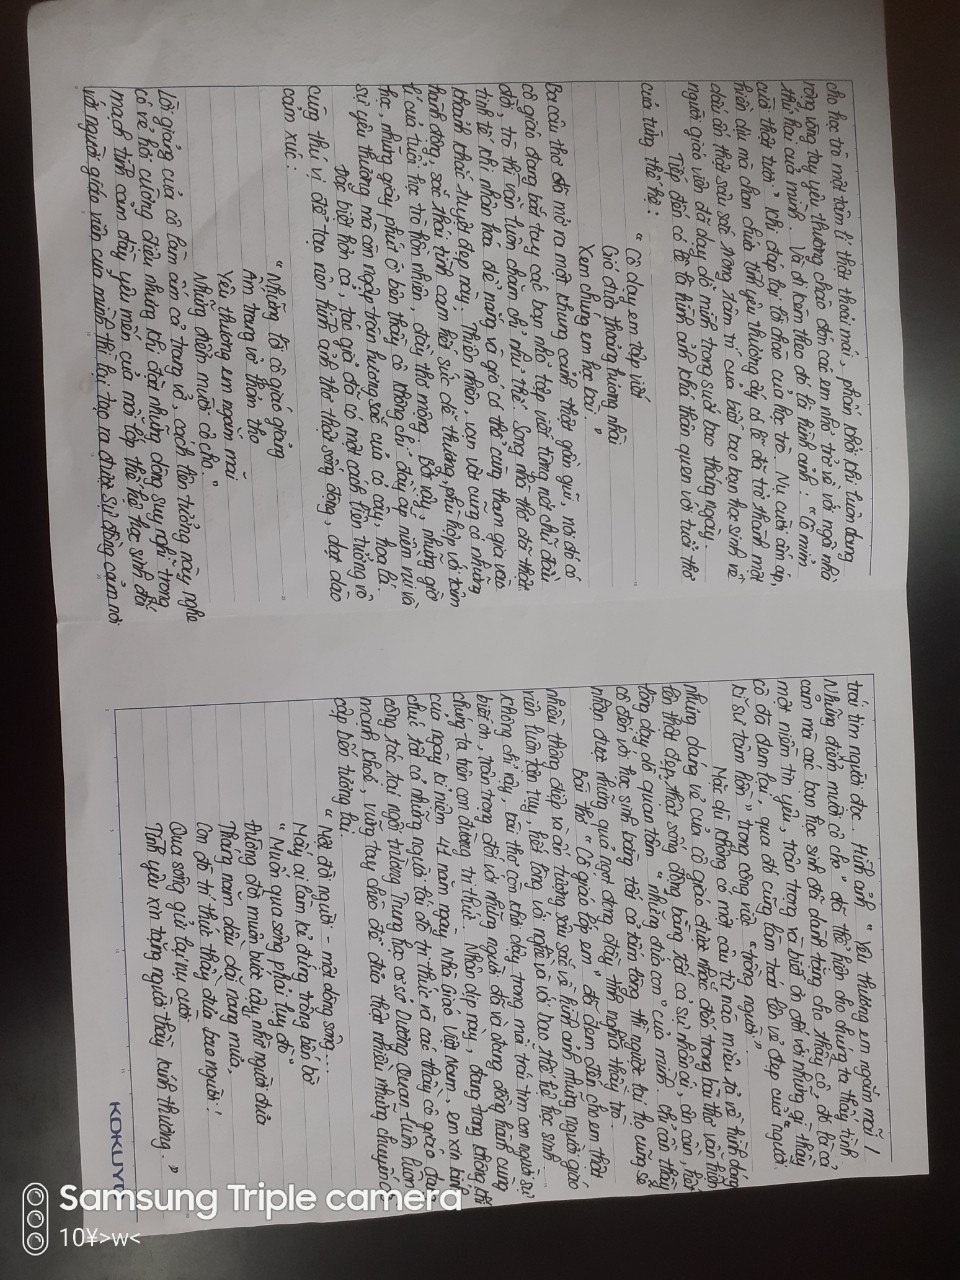 cho học trò một tâm lí thật thoải mái, phấn khởi khi luôn dang
rộng vòng tay yêu thương chào đón các em nhỏ trở về với ngôi nhà
thứ hai của mình. Và đi kèm theo đó là hình ảnh: "Cô mỉm
cười thật tươi" khi đáp lại lời chào của học trò. Nụ cười ấm áp,
hiền dịu mà chan chứa tình yêu thương ấy có lẽ đã trở thành một
dấu ấn thật sâu sắc trong tâm trí của biết bao bạn học sinh về
người giáo viên đã dạy dỗ mình trong suốt bao tháng ngày.
Tiếp đến có lẽ là hình ảnh khá thân quen với tuổi thơ
của từng thế hệ:
"Cô dạy em tập viết
Gió đưa thoảng hương nhài
Xem chúng em học bài"
Ba câu thơ đã mở ra một khung cảnh thật gần gũi, nơi đó có
cô giáo đang bắt tay các bạn nhỏ tập viết từng nét chữ đầu
đời, trò thì vẫn luôn chăm chỉ như thế. Song nhà thơ đã thật
tinh tế khi nhân hoá để nắng và gió có thể cùng tham gia vào
khoảnh khắc tuyệt đẹp này; Thiên nhiên, vạn vật cũng có những
hành động, sắc thái tình cảm hết sức dễ thương, phù hợp với tâm
lí của tuổi học trò hồn nhiên, đầy thơ mộng. Bởi vậy, những giờ
học, những giây phút ở bên thầy cô không chỉ đầy ắp niềm vui và
sự yêu thương mà còn ngập tràn hương sắc của cỏ cây, hoa lá.
Đặc biệt hơn cả, tác giả đã có một cách liên tưởng vô
cùng thú vị để tạo nên hình ảnh thơ thật sống động, dạt dào
cảm xúc:
"Những lời cô giáo giảng
Ấm trang vở thơm tho
Yêu thương em ngắm mãi
Những điểm mười cô cho."
Lời giảng của cô làm ấm cả trang vở, cách liên tưởng này, nghe
có vẻ hơi cường điệu nhưng khi đặt những dòng suy nghĩ trong
mạch tình cảm đầy yêu mến của mỗi lớp thế hệ học sinh đối
với người giáo viên của mình thì lại tạo ra được sự đồng cảm nơi
trái tim người đọc. Hình ảnh "Yêu thương em ngắm mãi/
Những điểm mười cô cho" đã thể hiện cho chúng ta thấy tình
cảm mà các bạn học sinh đã dành tặng cho thầy cô, đó là cả
một niềm tin yêu, trân trọng và biết ơn đối với những gì thầy
cô đã đem lại, qua đó cũng làm toát lên vẻ đẹp của người
"kĩ sư tâm hồn" trong công việc "trồng người".
Mặc dù không có một câu từ nào miêu tả về hình dáng
nhưng dáng vẻ của cô giáo được nhắc đến trong bài thơ vẫn hiện
lên thật đẹp, thật sống động bằng tất cả sự nhân ái, ân cần, hết
lòng dạy dỗ quan tâm "những đứa con" của mình. Chỉ cần thầy
cô đến với học sinh bằng tất cả tấm lòng thì người lái đò cũng sẽ
nhận được những quả ngọt đong đầy tình nghĩa thầy trò.
Bài thơ "Cô giáo lớp em" đã đem đến cho em thật
nhiều thông điệp và ấn tượng sâu sắc về hình ảnh những người giáo
viên luôn tận tuỵ, hết lòng với nghề và với bao thế hệ học sinh.
Không chỉ vậy, bài thơ còn khơi dậy trong mỗi trái tim con người sự
biết ơn, trân trọng đối với những người đã và đang đồng hành cùng
chúng ta trên con đường tri thức. Nhân dịp này, đang trong không khí
của ngày kỉ niệm 41 năm ngày Nhà Giáo Việt Nam, em xin kính
chúc tất cả những người lái đò tri thức và các thầy cô giáo đang
công tác tại ngôi trường Trung học cơ sở Dương Quan luôn luôn
mạnh khoẻ, vững tay chèo để đưa thật nhiều những chuyến đò
cập bến tương lai.
"Một đời người - một dòng sông...
Mấy ai làm kẻ đứng trông bến bờ
"Muốn qua sông phải luỵ đò"
Đường đời muôn bước cậy nhờ người đưa
Tháng năm dầu dãi nắng mưa,
Con đò trí thức thầy đưa bao người!
Qua sông gửi lại nụ cười
Tình yêu xin tặng người thầy kính thương."
KOKUYO
Samsung Triple camera
10¥>w<